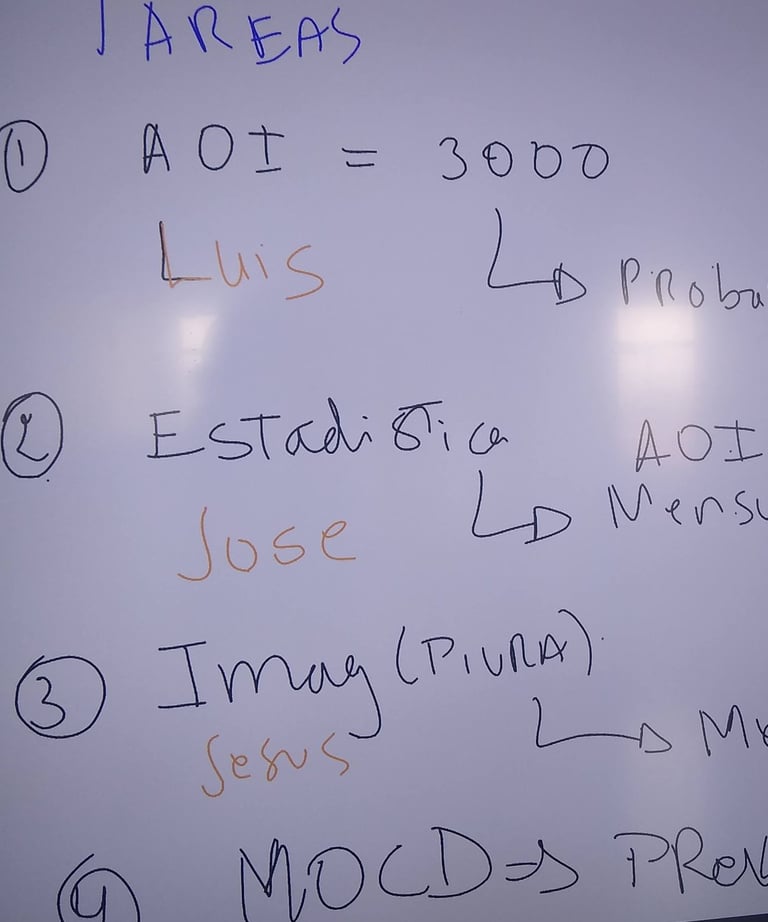 TAREAS
① AOI = 3000
Luis
↳ Proba
② Estadistica AOI
Jose ↳ Mensu
③ Imag (PIURA).
Jesus ↳
④ MOCD ⇒ PREV